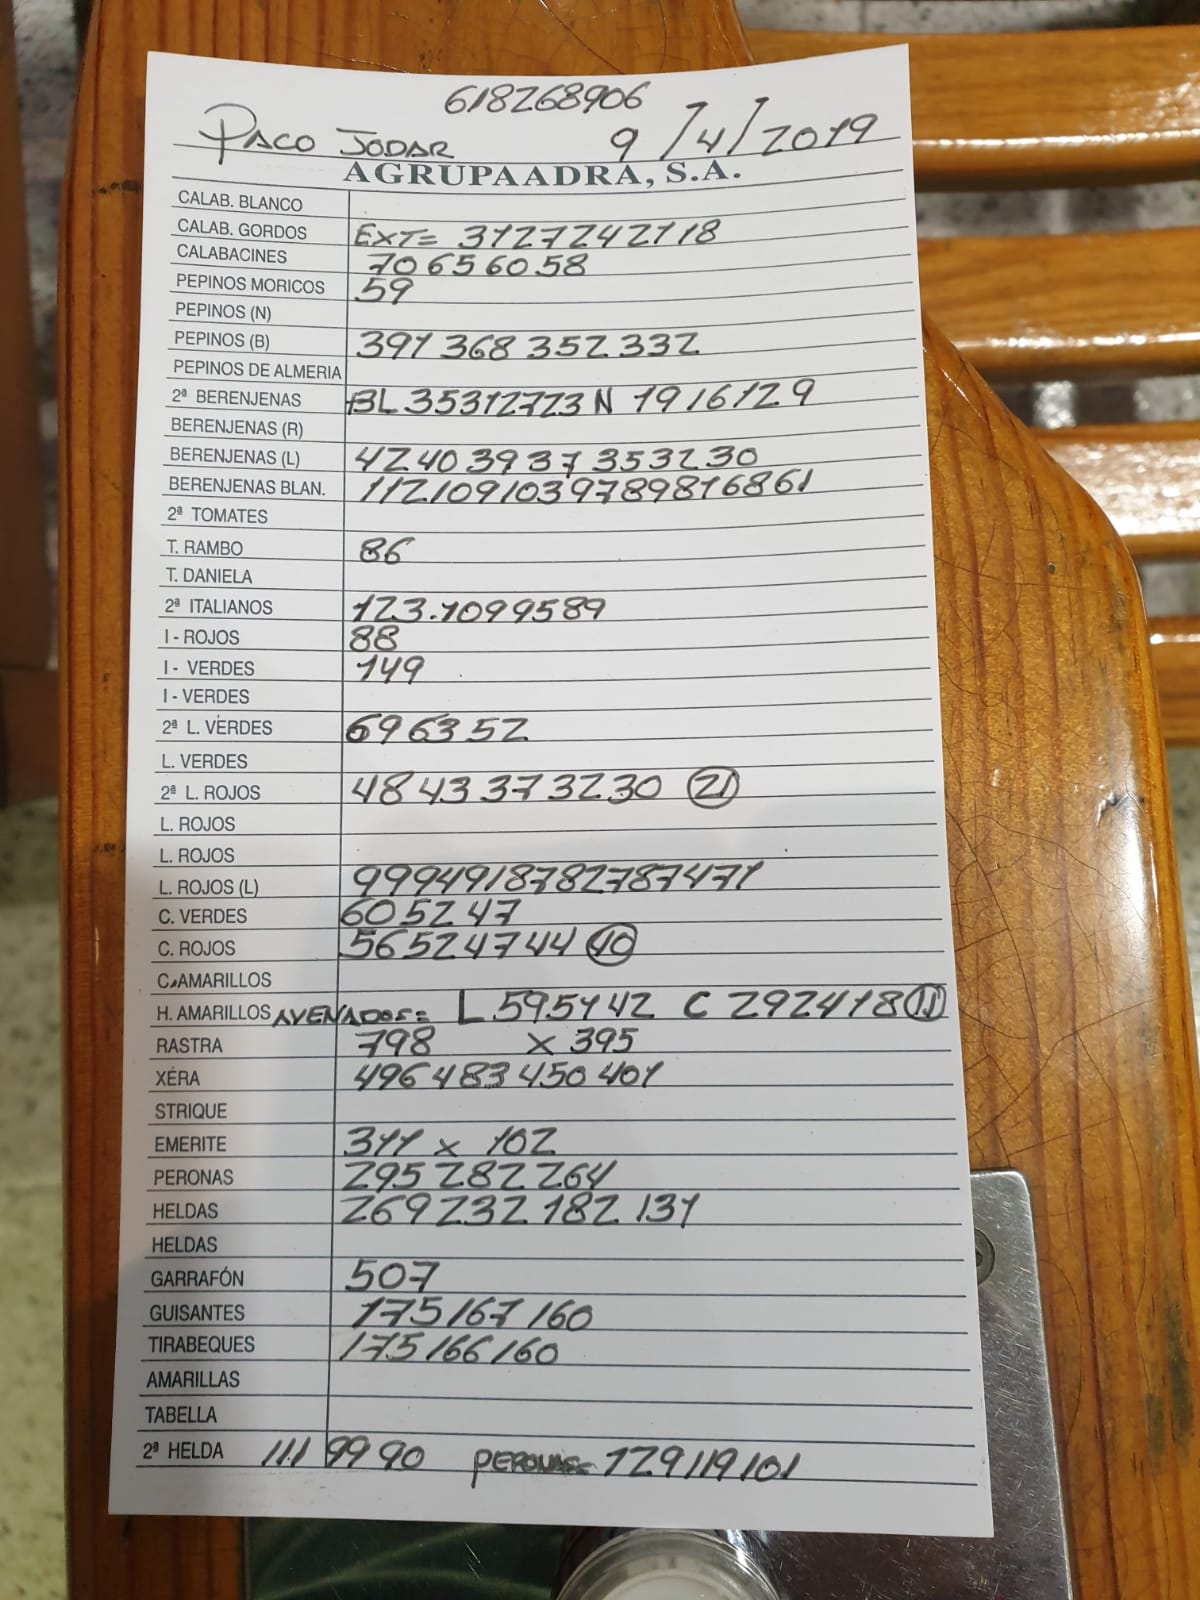 618268906
PACO JODAR 9/4/2019
AGRUPAADRA, S.A.
CALAB. BLANCO
CALAB. GORDOS EXT= 31272421 18
CALABACINES 70 65 60 58
PEPINOS MORICOS 59
PEPINOS (N)
PEPINOS (B) 391 368 352 332
PEPINOS DE ALMERIA
2ª BERENJENAS BL 35312723 N 19 16 12 9
BERENJENAS (R)
BERENJENAS (L) 42 40 39 37 35 32 30
BERENJENAS BLAN. 1121091039789816861
2ª TOMATES
T. RAMBO 86
T. DANIELA
2ª ITALIANOS 123.1099589
I - ROJOS 88
I - VERDES 149
I - VERDES
2ª L. VERDES 69 63 52
L. VERDES
2ª L. ROJOS 48 43 37 32 30 21
L. ROJOS
L. ROJOS
L. ROJOS (L) 9994918782787471
C. VERDES 60 52 47
C. ROJOS 56 52 47 44 40
C. AMARILLOS
H. AMARILLOS AVENADOS= L 59 51 42 C 29 24 18 11
RASTRA 798 x 395
XÉRA 496 483 450 401
STRIQUE
EMERITE 311 x 102
PERONAS 295 282 264
HELDAS 269 232 182 131
HELDAS
GARRAFÓN 507
GUISANTES 175 167 160
TIRABEQUES 175 166 160
AMARILLAS
TABELLA
2ª HELDA 111 99 90 PERONAS= 129 119 101